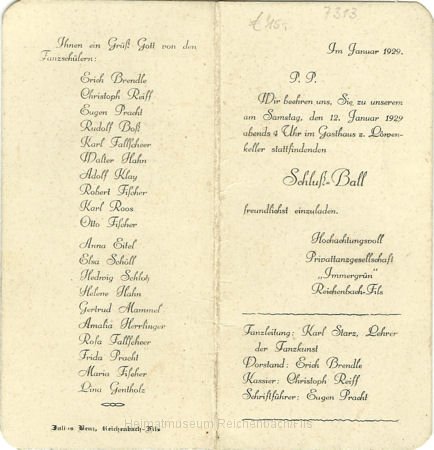 Ihnen ein Grüß Gott von den
Tanzschülern:
Erich Brendle
Christoph Reiff
Eugen Pracht
Rudolf Boß
Karl Fallscheer
Walter Hahn
Adolf Klay
Robert Fischer
Karl Roos
Otto Fischer
Anna Eitel
Elsa Schöll
Hedwig Schlotz
Helene Hahn
Gertrud Mammel
Amalie Herrlinger
Rosa Fallscheer
Frida Pracht
Maria Fischer
Lina Gentholz
Julius Benz, Reichenbach-Fils
€ 15.-
7313
Im Januar 1929.
P. P.
Wir beehren uns, Sie zu unserem
am Samstag, den 12. Januar 1929
abends 4 Uhr im Gasthaus z. Löwen-
keller stattfindenden
Schluß-Ball
freundlichst einzuladen.
Hochachtungsvoll
Privattanzgesellschaft
„Immergrün"
Reichenbach-Fils
Tanzleitung: Karl Starz, Lehrer
der Tanzkunst
Vorstand: Erich Brendle
Kassier: Christoph Reiff
Schriftführer: Eugen Pracht
Heimatmuseum Reichenbach/Fils